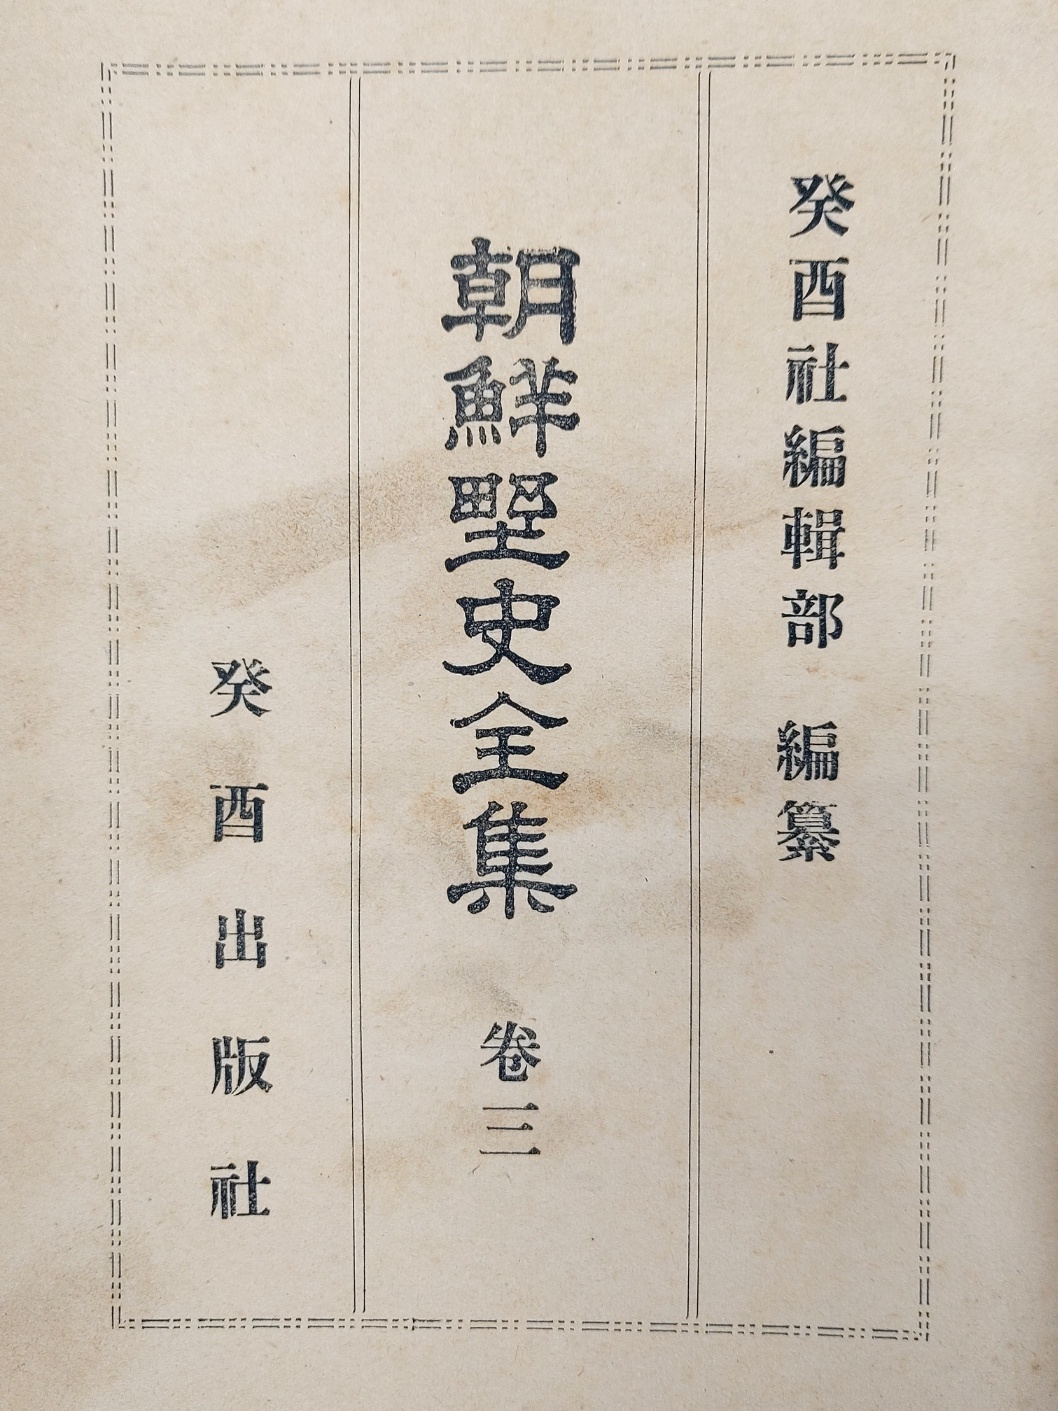 癸酉社編輯部 編纂
朝鮮野史全集 卷三
癸酉出版社